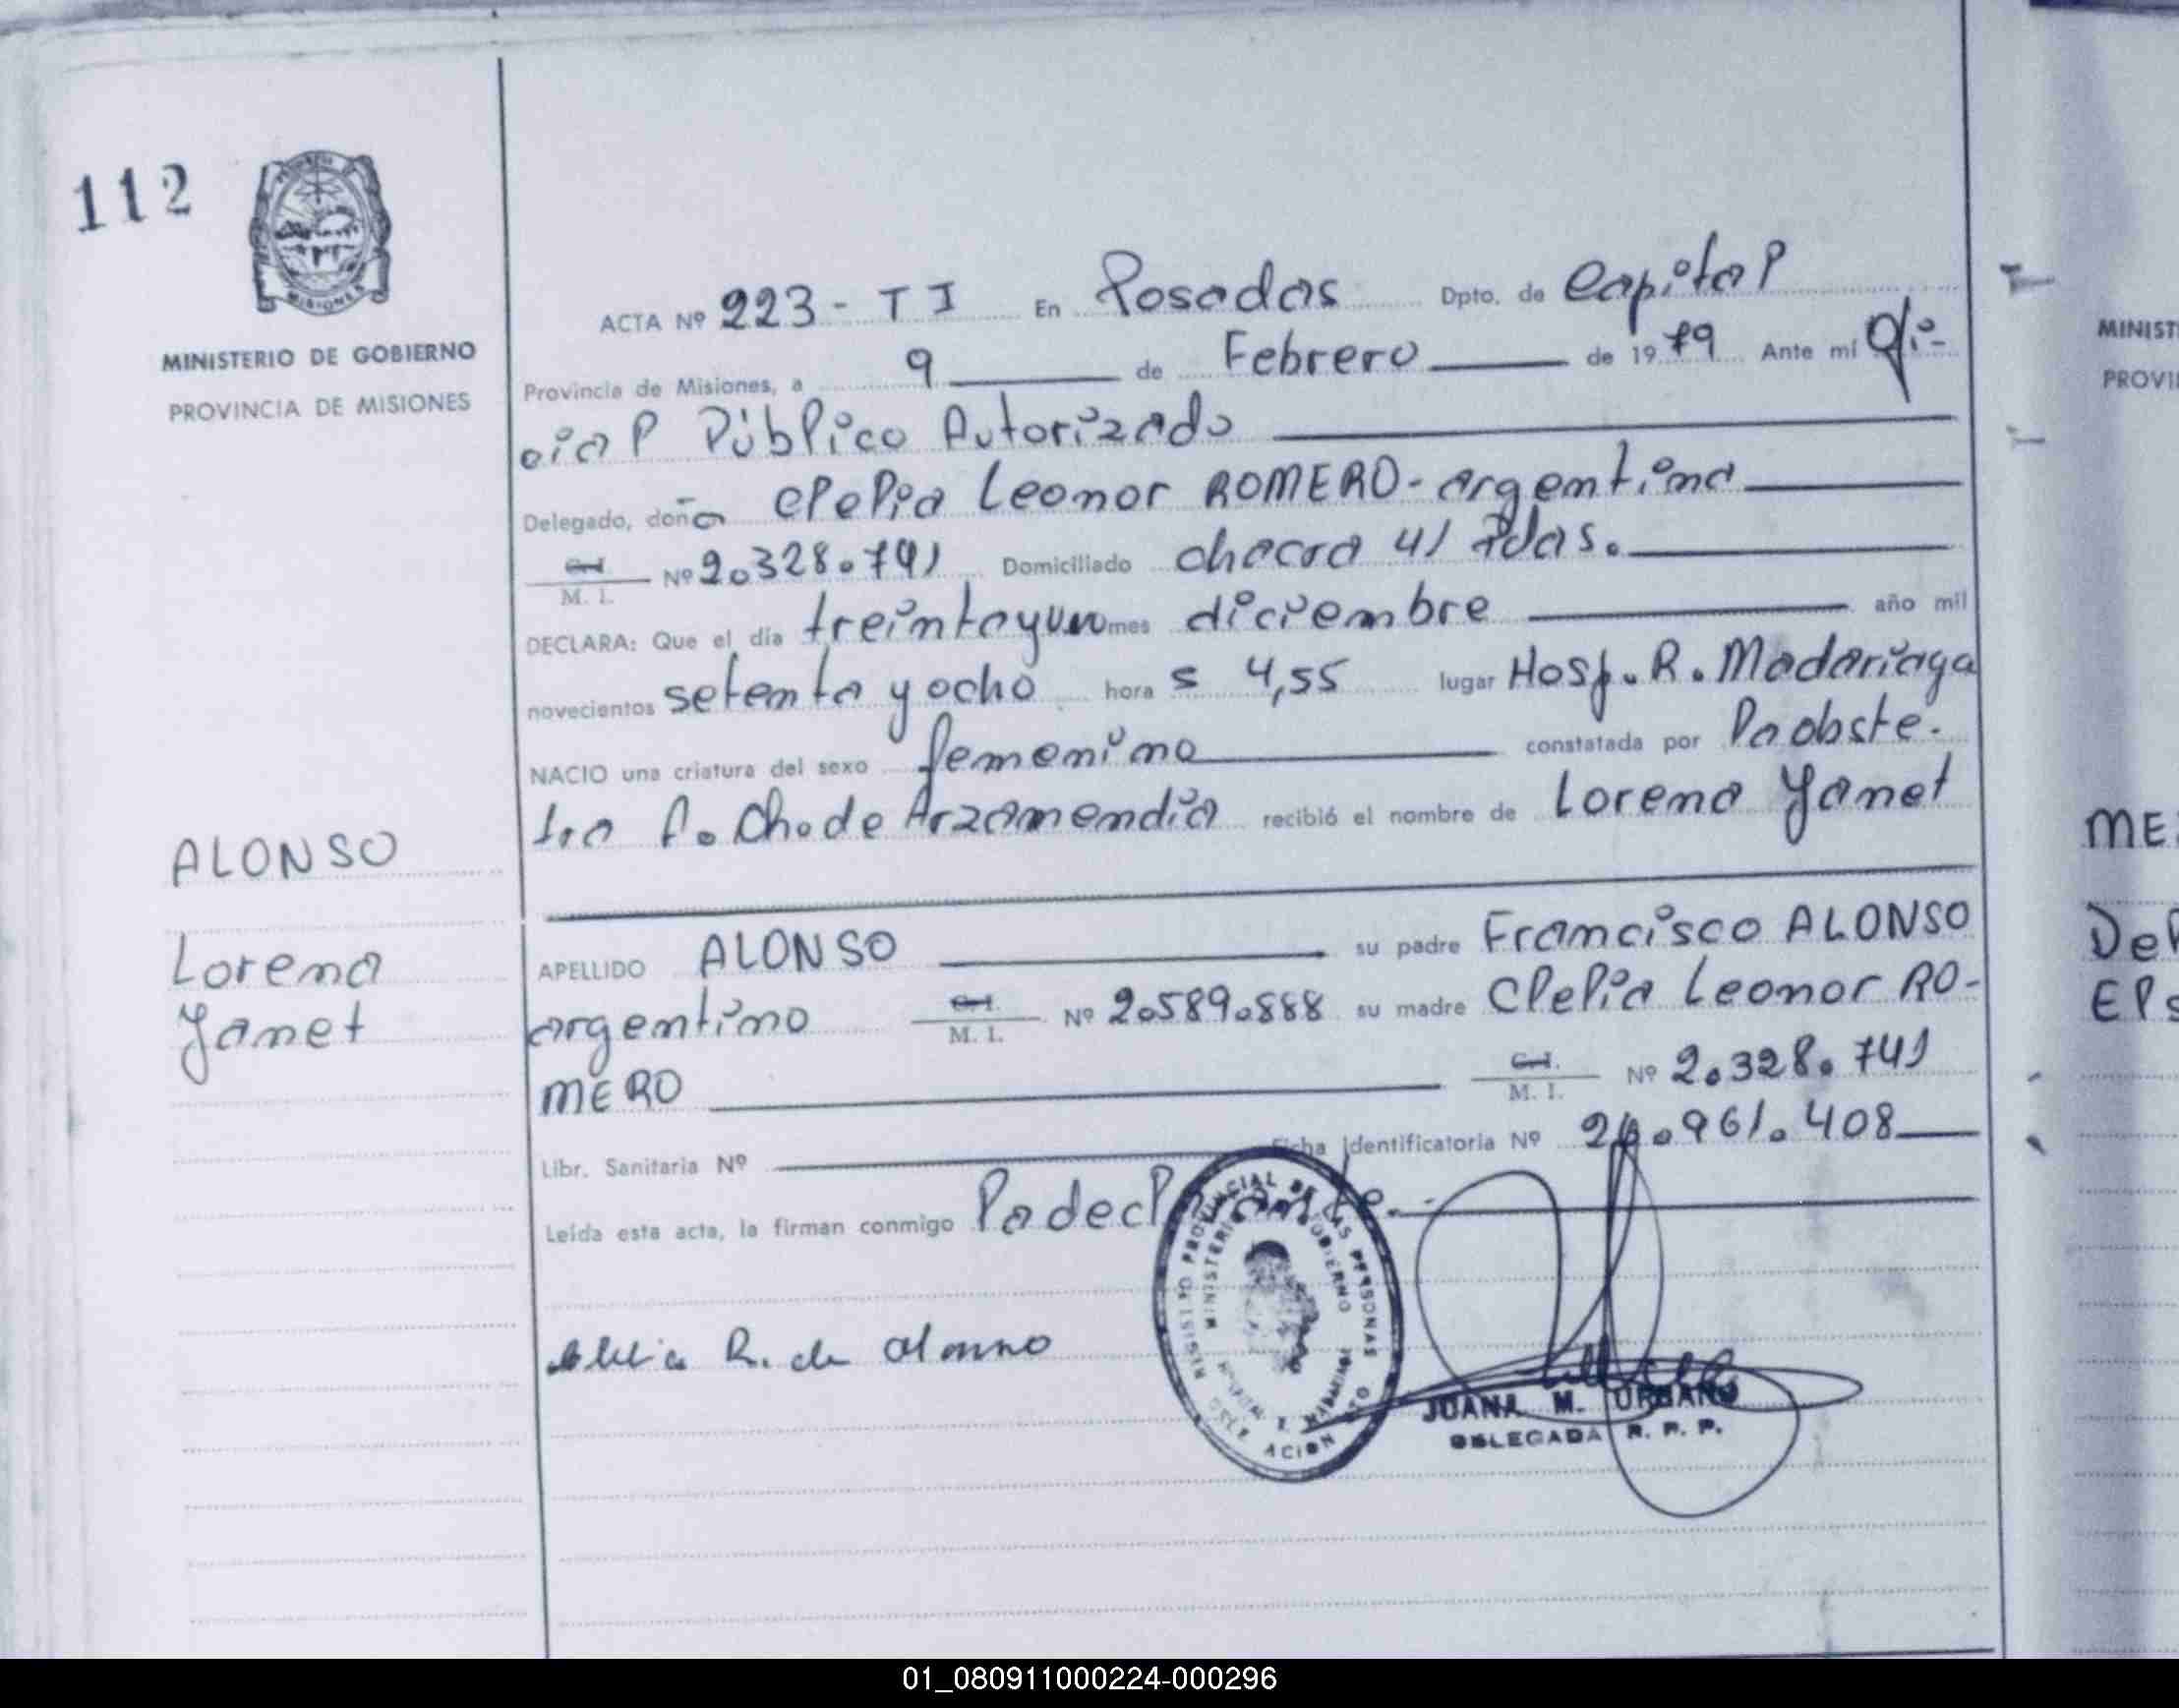 112
MISIONES
MINISTERIO DE GOBIERNO
PROVINCIA DE MISIONES
ACTA Nº 223 - T I En Posadas Dpto. de Capital
Provincia de Misiones, a 9 de Febrero de 1979 Ante mí Ofi-
cial Público Autorizado
Delegado, doña Clelia Leonor ROMERO - argentina
C. I. M. I. Nº 2.328.741 Domiciliado chacra 41 Pdas.
DECLARA: Que el día treintayuno mes diciembre año mil
novecientos setenta y ocho hora s 4,55 lugar Hosp. R. Madariaga
NACIO una criatura del sexo femenino constatada por la obste-
tra A. Ch. de Arzamendia recibió el nombre de Lorena Yanet
ALONSO
Lorena
Yanet
APELLIDO ALONSO su padre Francisco ALONSO
argentino C. I. M. I. Nº 2.589.888 su madre Clelia Leonor RO-
MERO C. I. M. I. Nº 2.328.741
Libr. Sanitaria Nº Ficha Identificatoria Nº 26.961.408
Leída esta acta, la firman conmigo la declarante.-
Clelia R. de Alonso
REGISTRO PROVINCIAL DE LAS PERSONAS
MINISTERIO DE GOBIERNO
JUANA M. URBANO
DELEGADA R. P. P.
MINIST
PROVI
ME
Del
Els
01_080911000224-000296